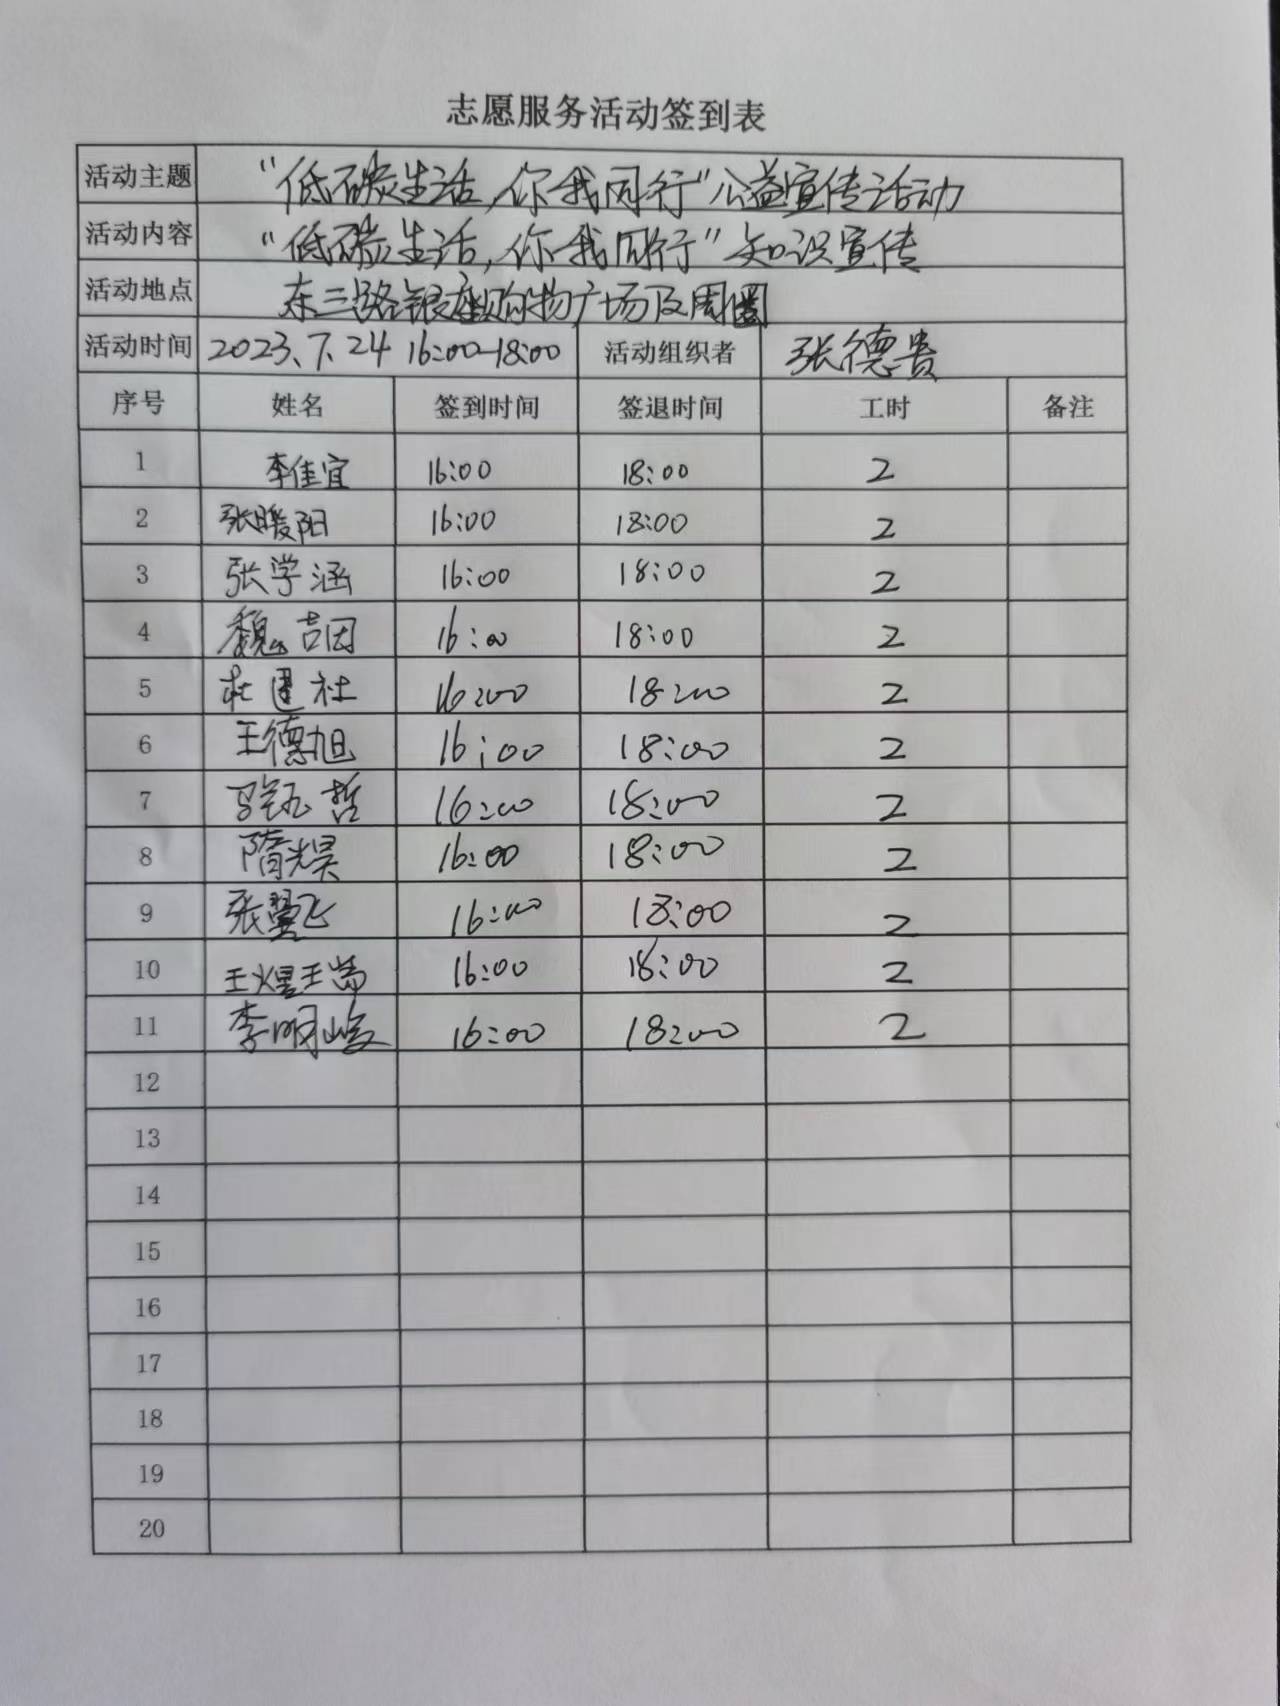 志愿服务活动签到表
活动主题 "低碳生活,你我同行"公益宣传活动
活动内容 "低碳生活,你我同行"知识宣传
活动地点 东三路银座购物广场及周圈
活动时间 2023.7.24 16:00-18:00 活动组织者 张德贵
序号 姓名 签到时间 签退时间 工时 备注
1 李佳宜 16:00 18:00 2
2 张暖阳 16:00 18:00 2
3 张学涵 16:00 18:00 2
4 魏吉因 16:00 18:00 2
5 杜建社 16:00 18:00 2
6 王德旭 16:00 18:00 2
7 16:00 18:00 2
8 隋光昊 16:00 18:00 2
9 张翼飞 16:00 18:00 2
10 16:00 18:00 2
11 李明峻 16:00 18:00 2
12
13
14
15
16
17
18
19
20